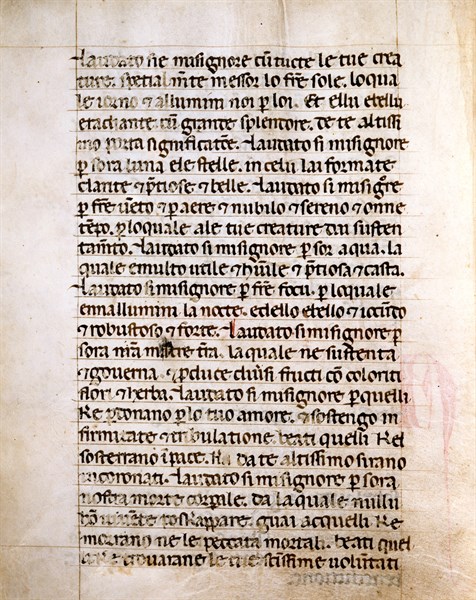 Laudato sie misignore cū tucte le tue crea
ture. spetialm̄te messor lo frē sole. loqua
le iorno ⁊ allumini noi ꝑ loi. Et ellu ebellu
eradiante. cū grande splendore. de te altissi
mo porta significatōe. Laudato si misignore
ꝑ sora luna ele stelle. in celu lai formate
clarite ⁊ p̄tiose ⁊ belle. Laudato si misigr̄e
ꝑ frē uēto ⁊ ꝑ aere ⁊ nubilo ⁊ sereno ⁊ onne
tēpo. ꝑ loquale ale tue creature dai susten
tam̄to. Laudato si misignore ꝑ sor aqua. la
quale emulto utile ⁊ hūile ⁊ p̄tiosa ⁊ casta.
Laudato si misignore ꝑ frē focu. ꝑ loquale
ennallumini la nocte. edello ebello ⁊ iocūdo
⁊ robustoso ⁊ forte. Laudato si misignore ꝑ
sora nrā matre trā. la quale ne sustenta
⁊ gouerna. ⁊ ꝓduce diūsi fructi cō coloriti
flori ⁊ herba. Laudato si misignore ꝑ quelli
ke ꝑdonano ꝑ lo tuo amore. ⁊ sostengo in
firmitate ⁊ tribulatione. beati quelli kel
sosterrano ī pace. ka da te altissimo sirano
incoronati. Laudato si misignore ꝑ sora
nostra morte corꝑale. da la quale nullu
hō uiuēte po skappare. guai acquelli ke
morrano ne le peccata mortali. beati quel
li ke trouarane le tue sctissime uoluntati